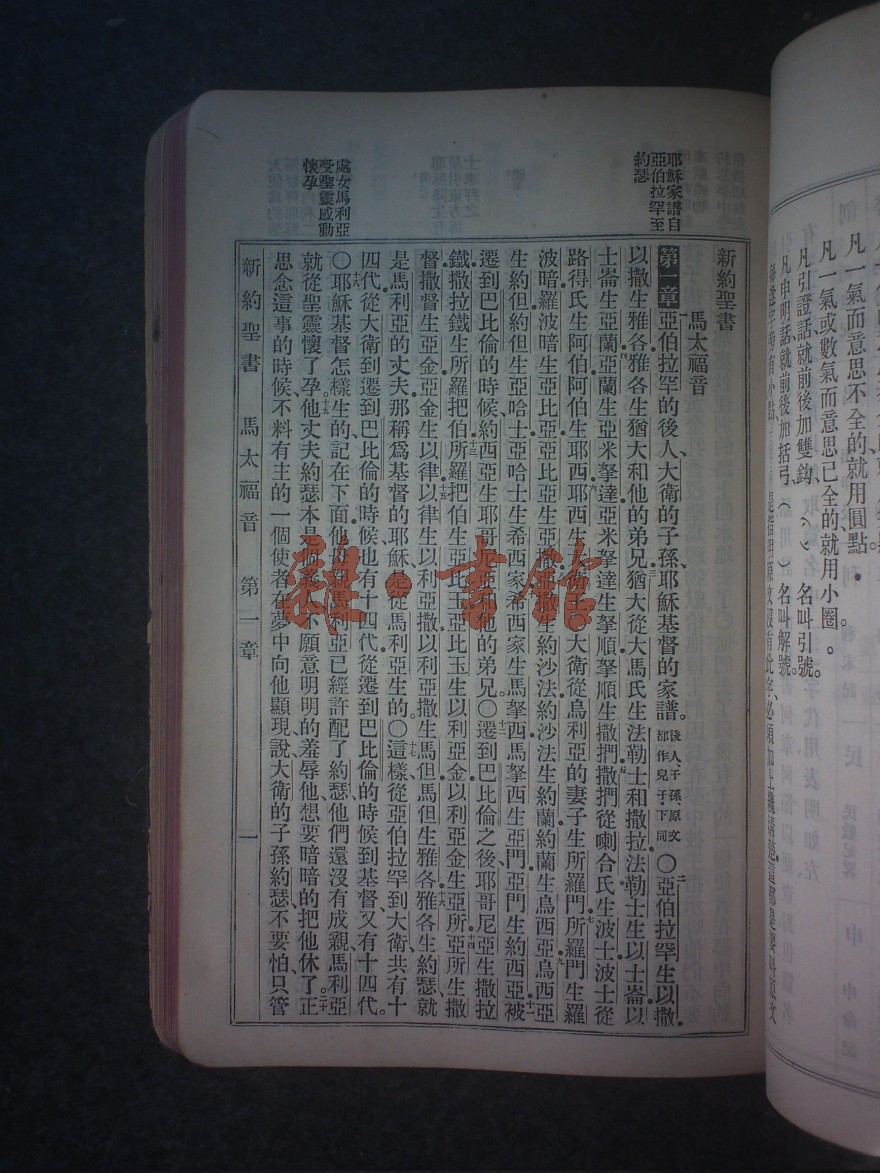 凡一氣而意思不全的就用圓點
凡一氣或數氣而意思已全的就用小圈。
凡引證話就前後加雙鈎、﹙﹚名叫引號。
凡申明話就前後加括弓、（）名叫解號。
耶穌家譜自
亞伯拉罕至
約瑟
處女馬利亞
受聖靈感動
懷孕
新約聖書
馬太福音
第一章 一亞伯拉罕的後人、大衛的子孫、耶穌基督的家譜。後人子孫原文都作兒子下同〇二亞伯拉罕生以撒、
以撒生雅各、雅各生猶大和他的弟兄、三猶大從大馬氏生法勒士和撒拉、法勒士生以士崙、以
士崙生亞蘭、四亞蘭生亞米拏達、亞米拏達生拏順、拏順生撒捫、五撒捫從喇合氏生波士、波士從
路得氏生阿伯、阿伯生耶西、六耶西生大衛王、大衛從烏利亞的妻子生所羅門、七所羅門生羅
波暗、羅波暗生亞比亞、亞比亞生亞撒、八亞撒生約沙法、約沙法生約蘭、約蘭生烏西亞、九烏西亞
生約但、約但生亞哈士、亞哈士生希西家、十希西家生馬拏西、馬拏西生亞門、亞門生約西亞、十一被
遷到巴比倫的時候、約西亞生耶哥尼亞和他的弟兄。〇十二遷到巴比倫之後、耶哥尼亞生撒拉
鐵、撒拉鐵生所羅把伯、十三所羅把伯生亞比玉、亞比玉生以利亞金、以利亞金生亞所、十四亞所生撒
督、撒督生亞金、亞金生以律、十五以律生以利亞撒、以利亞撒生馬但、馬但生雅各、十六雅各生約瑟、就
是馬利亞的丈夫、那稱為基督的耶穌、是從馬利亞生的。〇這樣從亞伯拉罕到大衛、共有十
四代、從大衛到遷到巴比倫的時候、也有十四代、從遷到巴比倫的時候到基督、又有十四代。
〇耶穌基督怎樣生的、記在下面、他母親馬利亞已經許配了約瑟、他們還沒有成親、馬利亞
就從聖靈懷了孕。十九他丈夫約瑟本是個義人、不願意明明的羞辱他、想要暗暗的把他休了。二十正
思念這事的時候、不料有主的一個使者、在夢中向他顯現、說、大衛的子孫約瑟、不要怕、只管
新約聖書 馬太福音 第一章 一
雜·書館